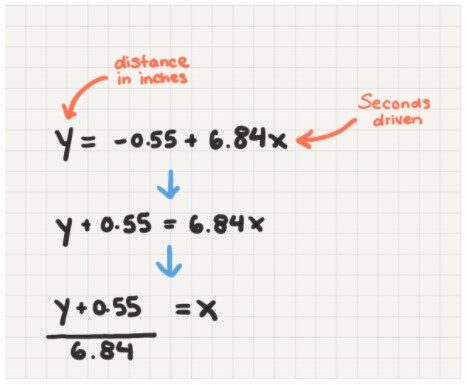 distance
in inches
Seconds
driven
y = -0.55 + 6.84x
y + 0.55 = 6.84x
y + 0.55 = x
6.84